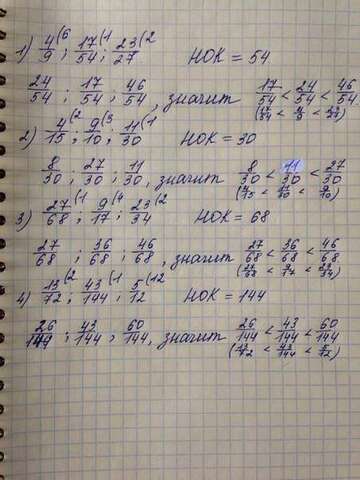 1) 4/9 (6 ; 17/54 (1 ; 23/27 (2 НОК = 54
24/54 ; 17/54 ; 46/54 , значит 17/54 < 24/54 < 46/54
(17/54 < 4/9 < 23/27)
2) 4/15 (2 ; 9/10 (3 ; 11/30 (1 НОК = 30
8/30 ; 27/30 ; 11/30 , значит 8/30 < 11/30 < 27/30
(4/15 < 11/30 < 9/10)
3) 27/68 (1 ; 9/17 (4 ; 23/34 (2 НОК = 68
27/68 ; 36/68 ; 46/68 , значит 27/68 < 36/68 < 46/68
(27/68 < 9/17 < 23/34)
4) 13/72 (2 ; 43/144 (1 ; 5/12 (12 НОК = 144
26/144 ; 43/144 ; 60/144 , значит 26/144 < 43/144 < 60/144
(13/72 < 43/144 < 5/12)